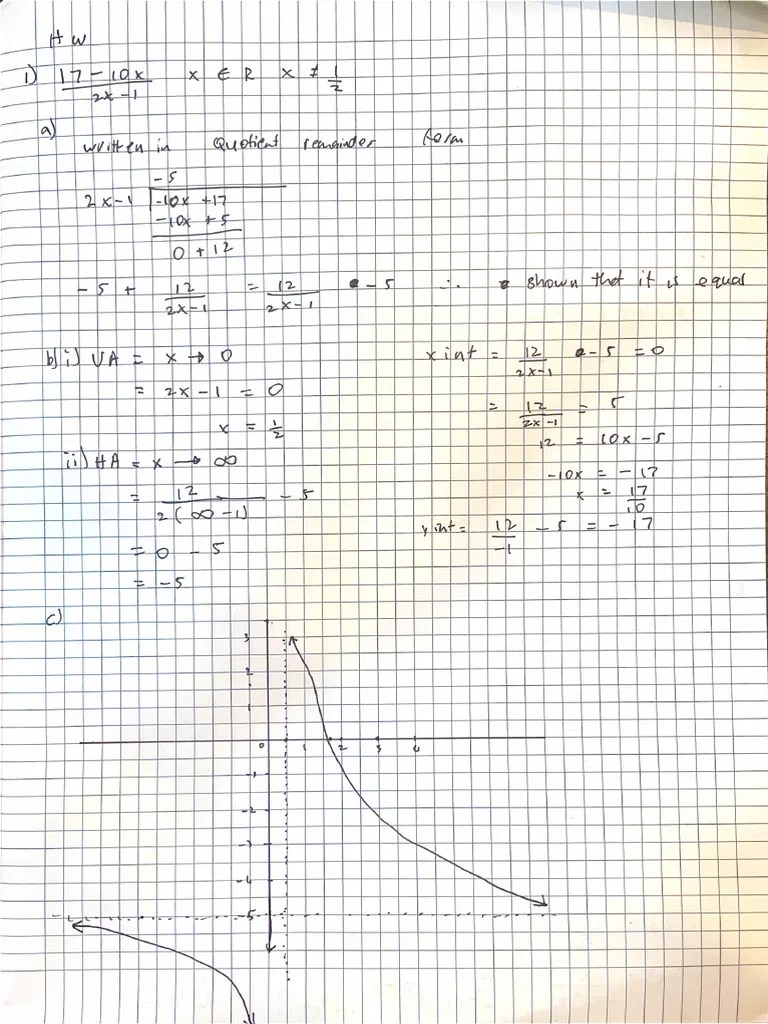 HW
1) 17 - 10x / 2x - 1 x ∈ R x ≠ 1/2
a)
written in Quotient remainder form
-5
2x-1 -10x +17
-10x +5
0 + 12
-5 + 12/2x-1 = 12/2x-1 -5 ∴ shown that it is equal
b) i) VA = x → 0
= 2x - 1 = 0
x = 1/2
ii) HA = x → ∞
= 12/2(∞-1) - 5
= 0 - 5
= -5
x int = 12/2x-1 - 5 = 0
= 12/2x-1 = 5
12 = 10x - 5
-10x = -17
x = 17/10
y int = 12/-1 - 5 = -17
c)
3
2
1
0 1 2 3 4
-1
-2
-3
-4
-5